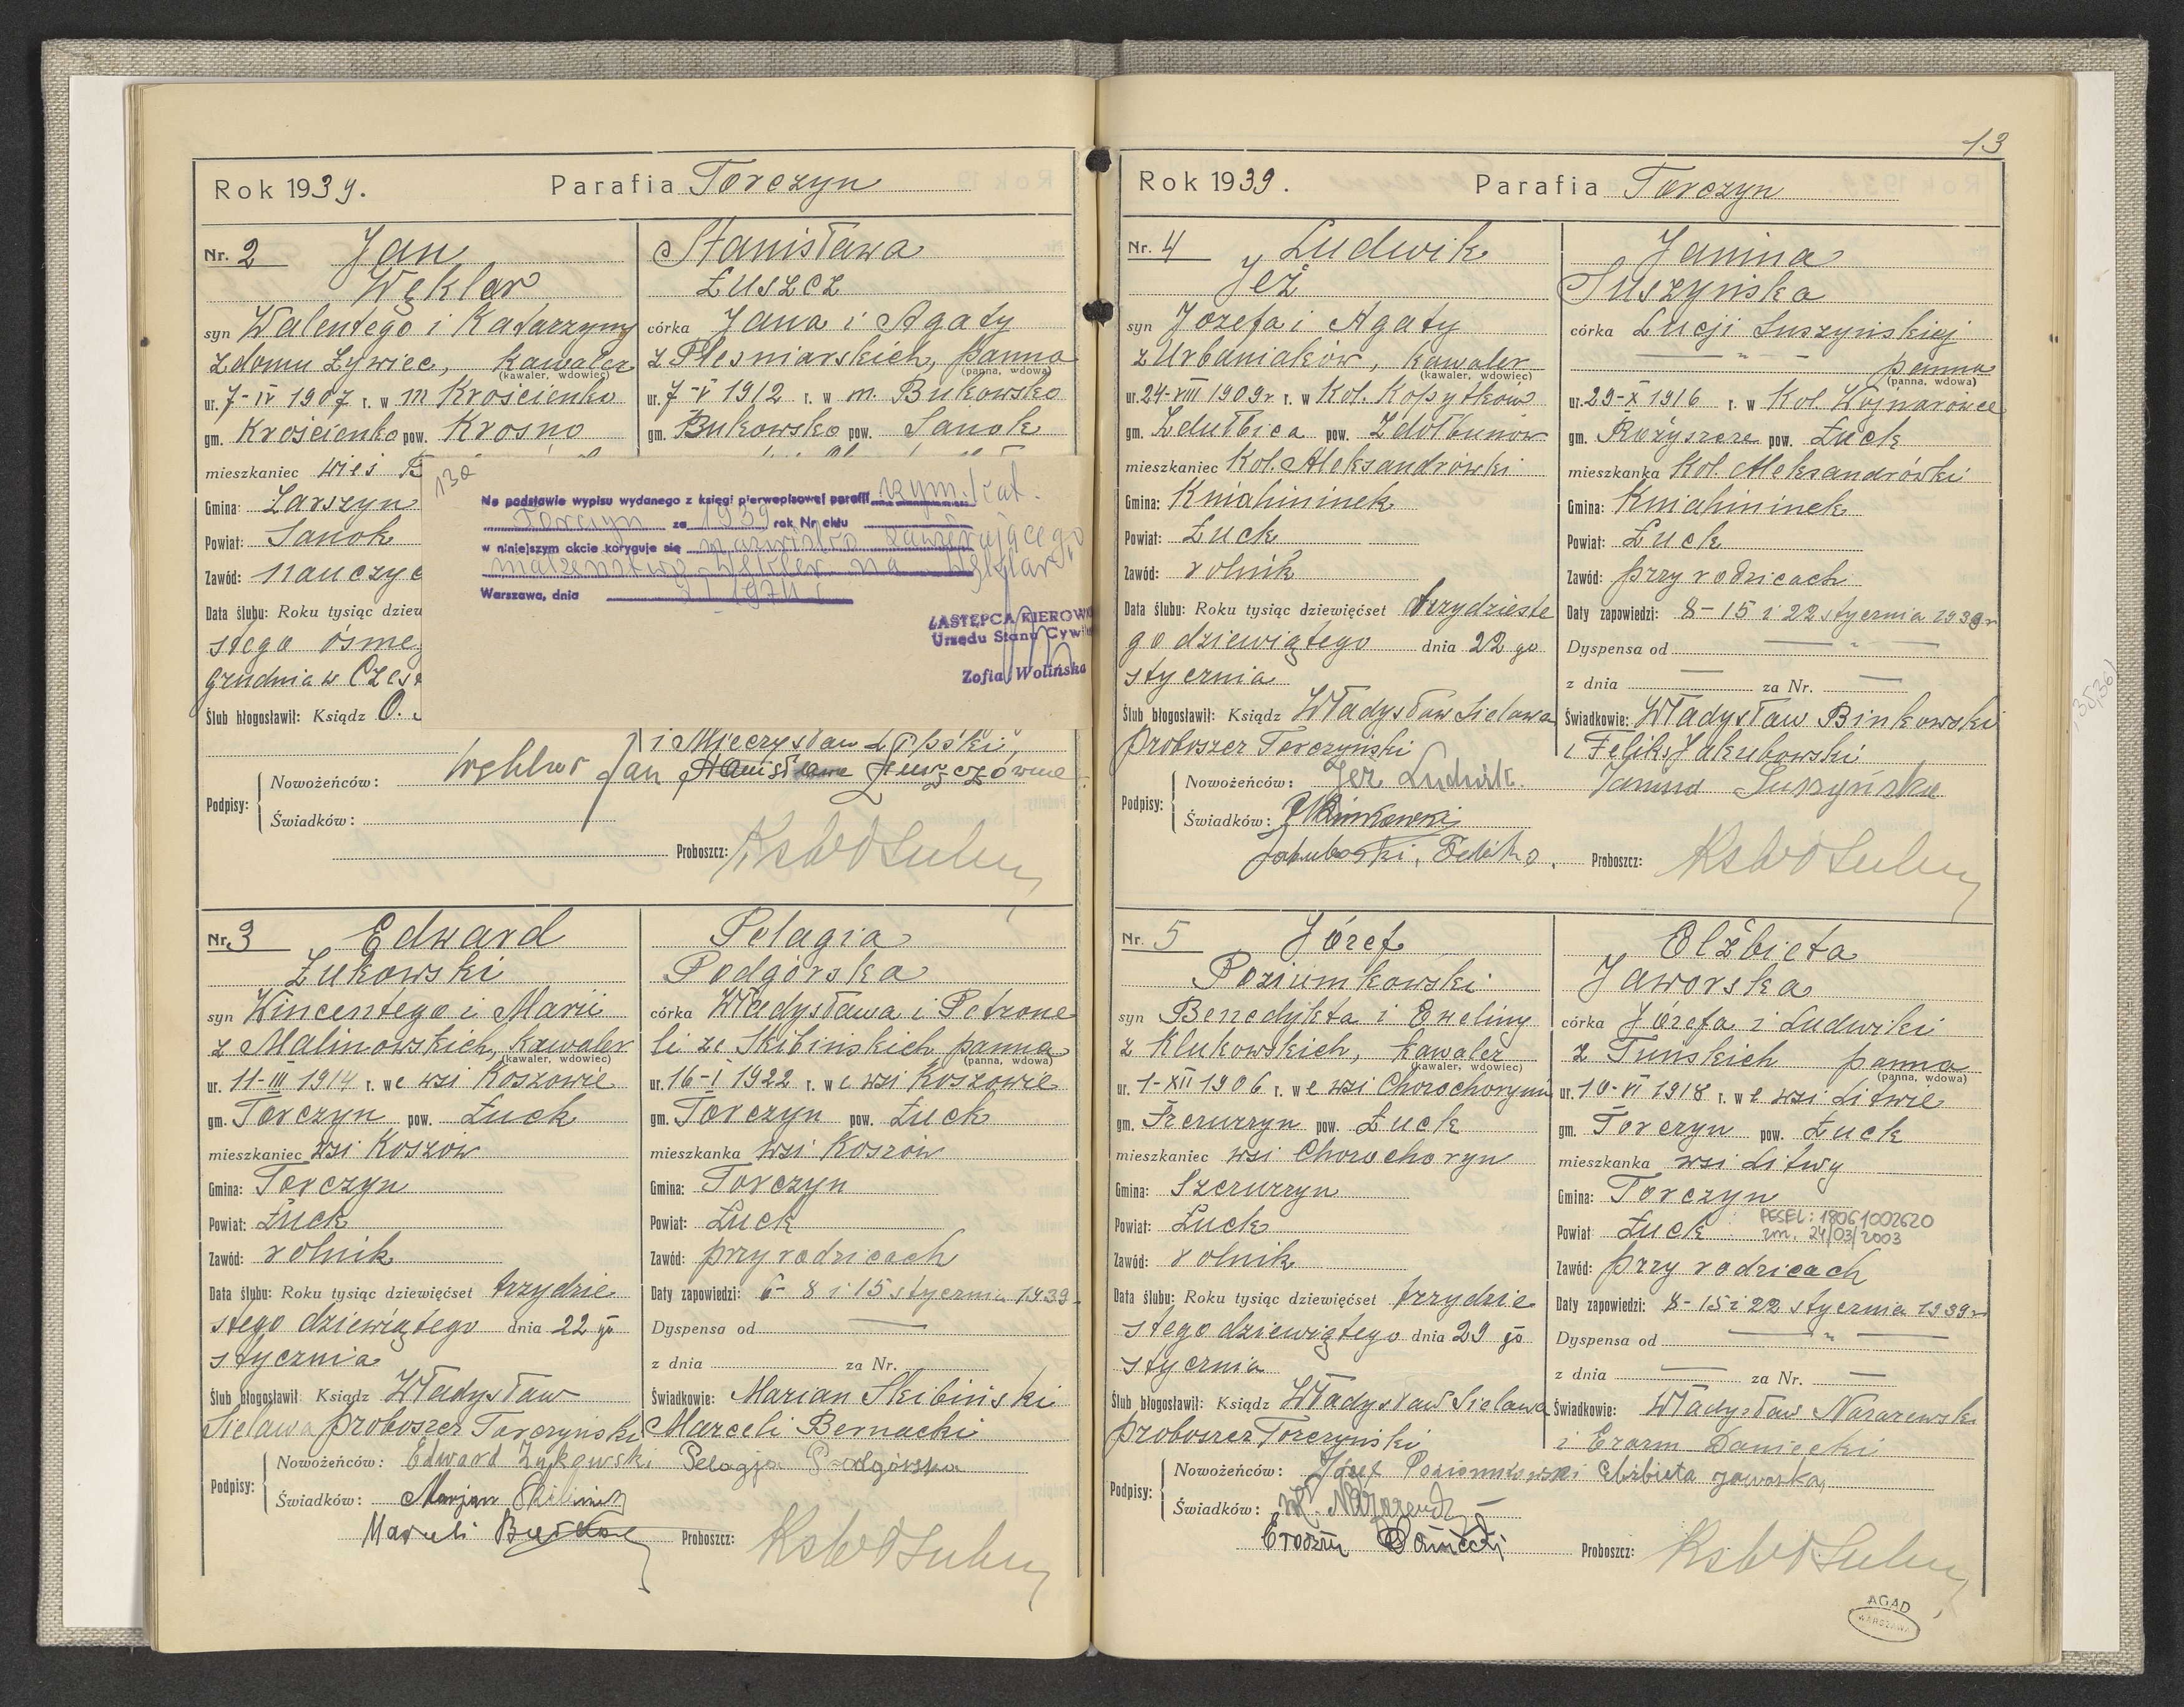 Rok 1939. Parafia Torczyn
Nr. 2 Jan
Węklar
syn Walentego i Katarzyny
z domu Żywiec, kawaler
(kawaler, wdowiec)
ur. 7-IV 1907 r. w m Krościenko
gm. Krościenko pow. Krosno
mieszkaniec wieś
Gmina: Zarszyn
Powiat: Sanok
Zawód: nauczyc
Data ślubu: Roku tysiąc dziew
stego ósmeg
grudnia w Częst
Ślub błogosławił: Ksiądz O.
Stanisława
Łuszcz
córka Jana i Agaty
z Pleśniarskich, panna
(panna, wdowa)
ur. 7-V 1912 r. w m. Bukowsko
gm. Bukowsko pow. Sanok
13a
Na podstawie wypisu wydanego z księgi pierwopisowej parafii rzym. kat.
Torczyn za 1939 rok Nr aktu
w niniejszym akcie koryguje się nazwisko zawierającego
małżeństwo "Wekler" na "Węklar"
Warszawa, dnia
ZASTĘPCA KIEROW
Urzędu Stanu Cywil
Zofia Wolińska
i Mieczysław
Podpisy:
Nowożeńców: Węklar Jan Stanisława Łuszczówna
Świadków:
Proboszcz:
Nr. 3 Edward
Żukowski
syn Wincentego i Marii
z Malinowskich, kawaler
(kawaler, wdowiec)
ur. 11-III 1914 r. w e wsi Koszowie
gm. Torczyn pow. Łuck
mieszkaniec wsi Koszów
Gmina: Torczyn
Powiat: Łuck
Zawód: rolnik
Data ślubu: Roku tysiąc dziewięćset trzydzie
stego dziewiątego dnia 22 go
stycznia
Ślub błogosławił: Ksiądz Władysław
Sielawa proboszcz Torczyński
Pelagia
Podgórska
córka Władysława i Petrone
li ze Skibińskich panna
(panna, wdowa)
ur. 16-I 1922 r. w e wsi Koszowie
gm. Torczyn pow. Łuck
mieszkanka wsi Koszów
Gmina: Torczyn
Powiat: Łuck
Zawód: przy rodzicach
Daty zapowiedzi: 6- 8 i 15 stycznia 1939
Dyspensa od —
z dnia za Nr.
Świadkowie: Marian Skibiński
Marceli Bernacki
Podpisy:
Nowożeńców: Edward Żukowski Pelagja Podgórska
Świadków: Marjan Skibiński
Marceli
Proboszcz:
13
Rok 1939. Parafia Torczyn
Nr. 4 Ludwik
Jeż
syn Józefa i Agaty
z Urbaniaków, kawaler
(kawaler, wdowiec)
ur. 24-VIII 1909 r. r. w Kol. Kopytków
gm. Zdułbica pow. Zdołbunów
mieszkaniec Kol. Aleksandrówki
Gmina: Kniahininek
Powiat: Łuck
Zawód: rolnik
Data ślubu: Roku tysiąc dziewięćset trzydzieste
go dziewiątego dnia 22 go
stycznia
Ślub błogosławił: Ksiądz Władysław Sielawa
proboszcz Torczyński
Janina
Suszyńska
córka Łucji Suszyńskiej
— " —
panna
(panna, wdowa)
ur. 29-X 1916 r. w Kol. Wojnarówce
gm. Rożyszcze pow. Łuck
mieszkanka Kol. Aleksandrówki
Gmina: Kniahininek
Powiat: Łuck
Zawód: przy rodzicach
Daty zapowiedzi: 8 - 15 i 22 stycznia 1939 r
Dyspensa od — " —
z dnia — za Nr. —
Świadkowie: Władysław Binkowski
i Feliks Jakubowski
Podpisy:
Nowożeńców: Jeż Ludwik. Janina Suszyńska
Świadków: WBinkowski
Jakubowski, Feliks.
Proboszcz:
Nr. 5 Józef
Poziumkowski
syn Benedykta i Eweliny
z Klukowskich, kawaler
(kawaler, wdowiec)
ur. 1-XII 1906 r. w e wsi Chorochoryniu
gm. pow. Łuck
mieszkaniec wsi Chorochoryn
Gmina: Szczurzyn
Powiat: Łuck
Zawód: rolnik
Data ślubu: Roku tysiąc dziewięćset trzydzie
stego dziewiątego dnia 29 go
stycznia
Ślub błogosławił: Ksiądz Władysław Sielawa
proboszcz Torczyński
Elżbieta
Jaworska
córka Józefa i Ludwiki
z Tuńskich panna
(panna, wdowa)
ur. 10-VI 1918 r. w e wsi Litwie
gm. Torczyn pow. Łuck
mieszkanka wsi Litwy
Gmina: Torczyn
Powiat Łuck
PESEL: 18061002620
zm. 24/03/2003
Zawód: przy rodzicach
Daty zapowiedzi: 8 - 15 i 22 stycznia 1939 r
Dyspensa od — " —
z dnia — za Nr. —
Świadkowie: Władysław Nazarewski
i Erazm Daniecki
Podpisy:
Nowożeńców: Józef Poziomkowski Elżbieta Jaworska
Świadków: Wł. Nazarewski
Erazm Daniecki
Proboszcz:
AGAD
WARSZAWA